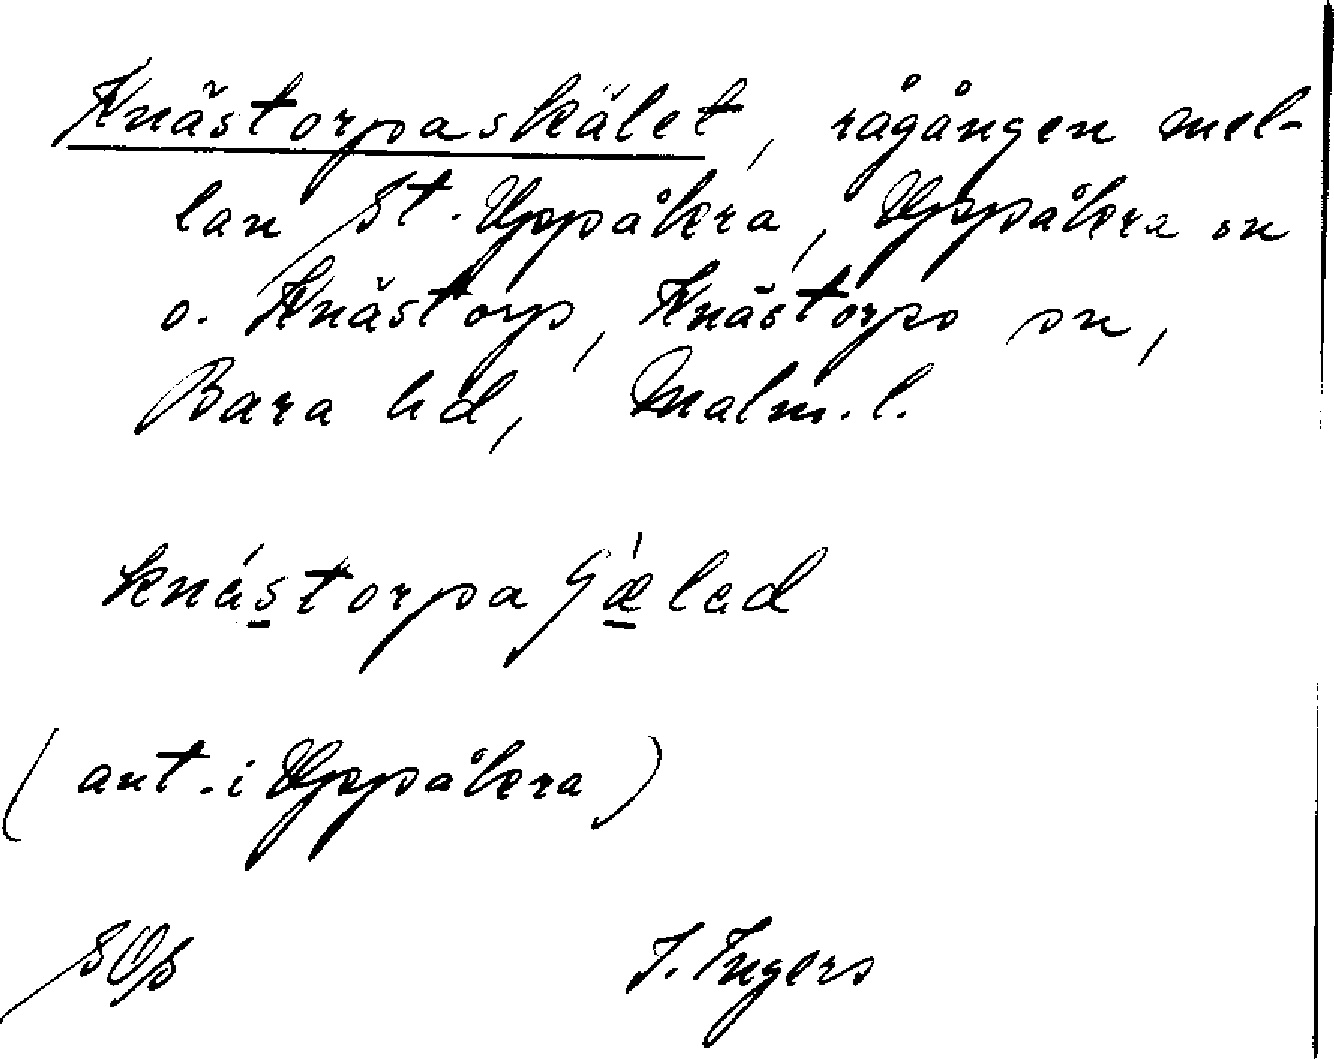 Knästorpaskälet, rågången mel-
lan St. Uppåkra, Uppåkra sn
o. Knästorp, Knästorps sn,
Bara hd, Malm. l.
knástorpa ʃǽled
(ant. i Uppåkra)
I. Ingers